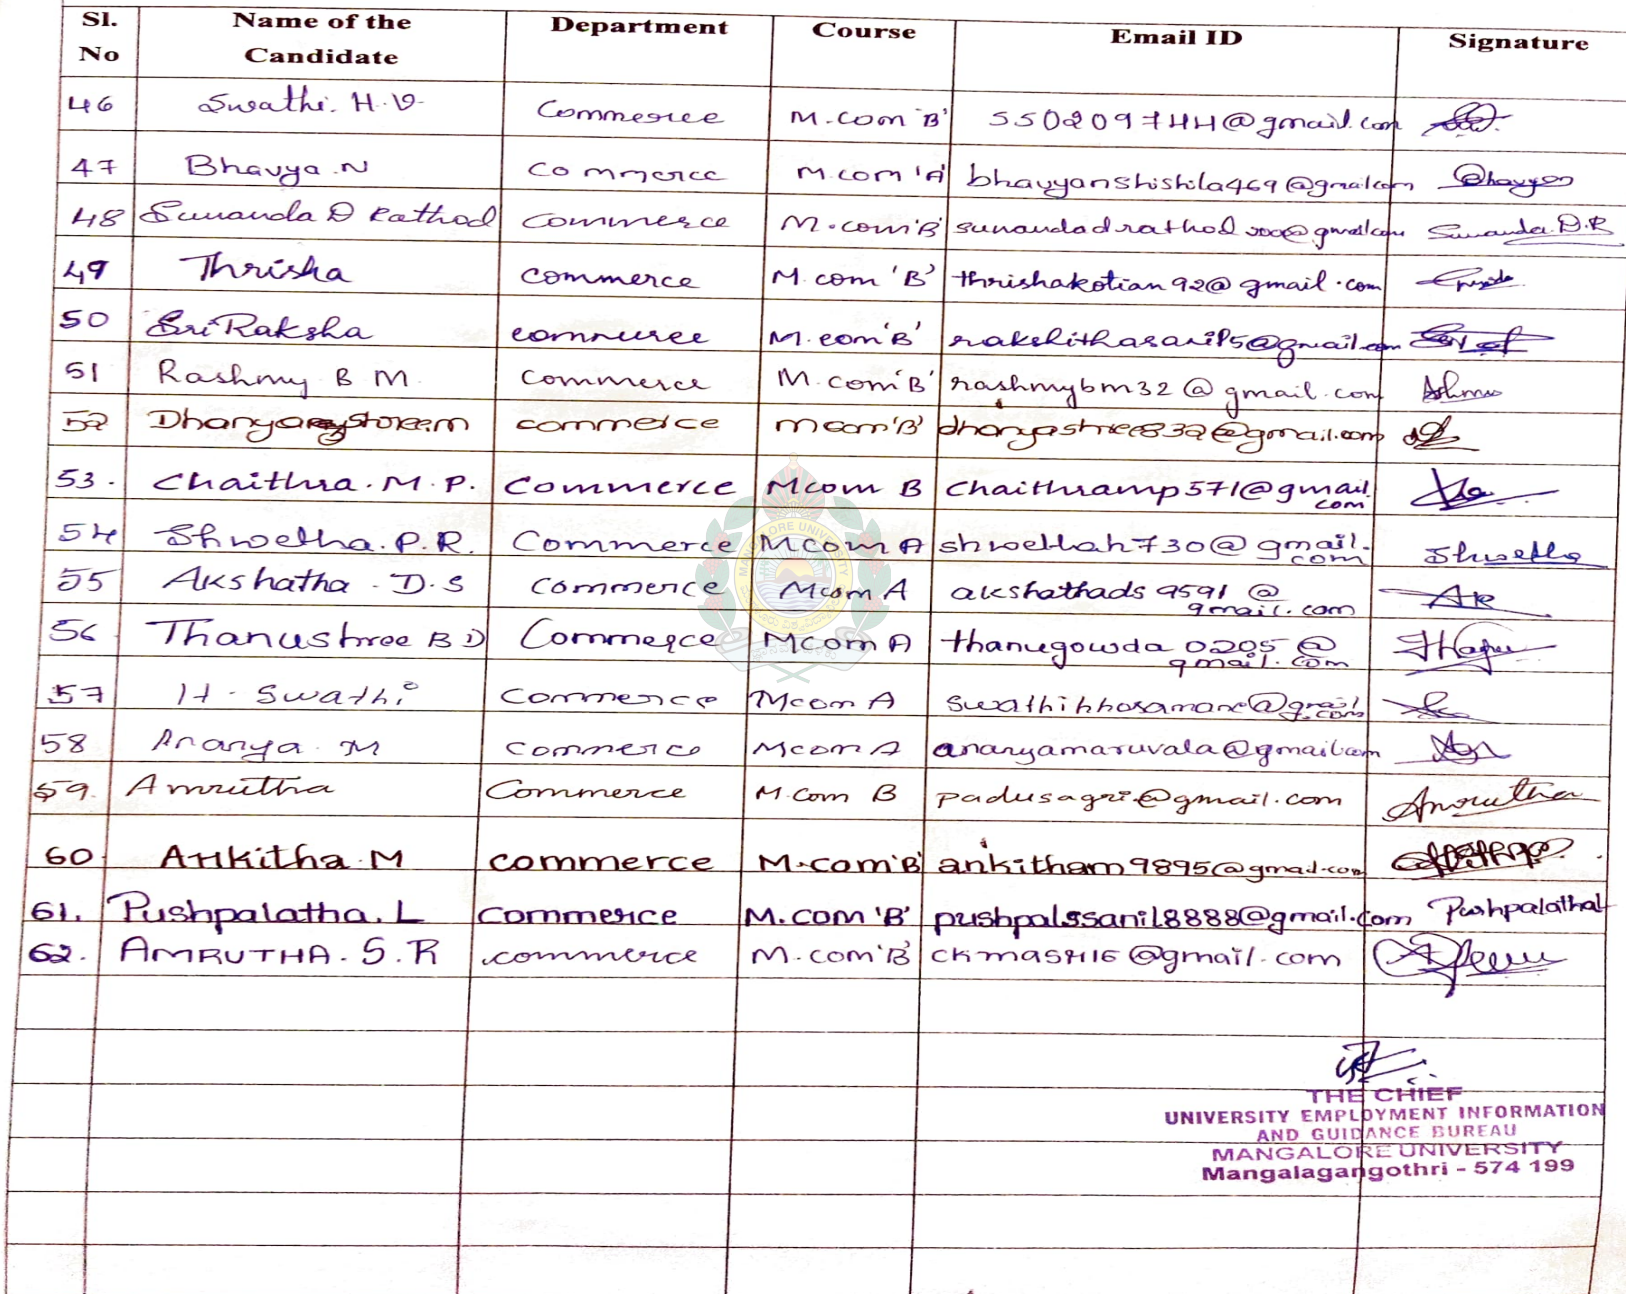 Sl. No Name of the Candidate Department Course Email ID Signature
46 Swathi. H.V. Commerce M.com 'B' @gmail.com
47 Bhavya.N Commerce M.com 'A' @gmail.com Bhavya
48 Sunanda D Rathod Commerce M.com 'B' Sunanda.D.R
49 Thrisha commerce M.com 'B' thrishakotian92@gmail.com
50 Sri Raksha commerce M.com 'B'
51 Rashmy B M commerce M.com 'B' rashmybm32@gmail.com
52 commerce mcom 'B'
53. Chaithra.M.P. Commerce Mcom B Chaithramp571@gmail.com
54 Shwetha.P.R. Commerce Mcom A Shwetha
55 Akshatha.D.S commerce Mcom A akshathads9591@gmail.com
56 Thanushree B D Commerce Mcom A thanugowda0205@gmail.com
57 H. Swathi Commerce Mcom A
58 Ananya M Commerce Mcom A ananyamaruvala@gmail.com
59. Amrutha Commerce M.Com B padusagri@gmail.com Amrutha
60 Ankitha M commerce M.com 'B' ankitham9895@gmail.com
61. Pushpalatha.L commerce M.com 'B' pushpalssanil8888@gmail.com Pushpalatha L
62. AMRUTHA.S.R commerce M.com 'B' @gmail.com
THE CHIEF
UNIVERSITY EMPLOYMENT INFORMATION
AND GUIDANCE BUREAU
MANGALORE UNIVERSITY
Mangalagangothri - 574 199